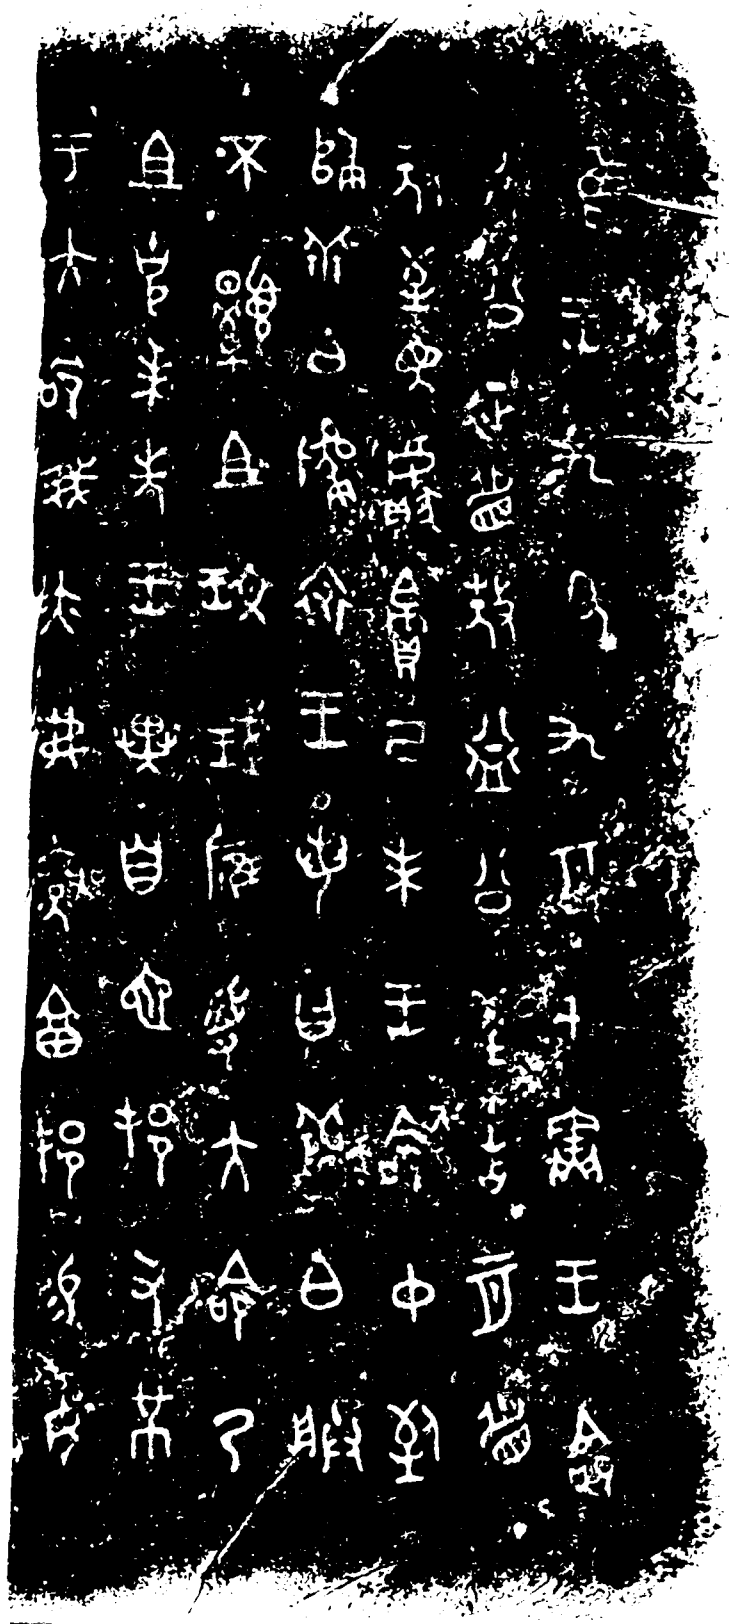 隹王九年九月甲寅王命
益公征眉敖益公至告二月眉
敖至見獻𧵩己未王命中致
歸乖白貔裘王若曰乖白朕
不顯且玟珷雁受大命乃
且克𠦪先王異自它邦又芇
于大命我亦弗𥩲享邦易女